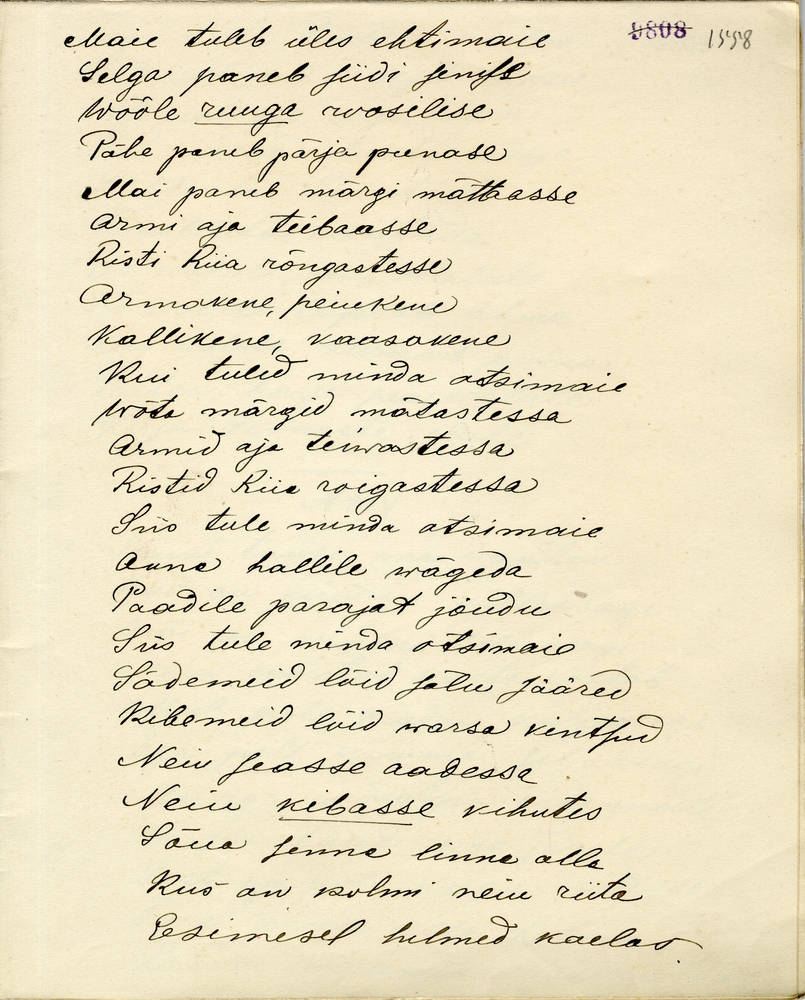 9808 1558
Maie tuleb üles ehtimaie
Selga paneb siidi sinise
Wööle ruuga roosilise
Pähe paneb pärja punase
Mai paneb märgi mättaasse
Armi aja teibaasse
Risti kiia rõngastesse
Armakene, peiukene
Kallikene, kaasakene
Kui tuled minda otsimaie
Wõta märgid mätastessa
Armid aja teiwastessa
Ristid kiia roigastessa
Siis tule minda otsimaie
Anna hallile wägeda
Paadile parajat jõudu
Siis tule minda otsimaie
Sädemeid lõid sälu sääred
Kibemeid lõid warsa kintsud
Neiu seasse aadessa
Neiu kibasse kihutes
Sõua sinna linna alla
Kus on kolmi neiu riita
Eesimesel helmed kaelas.